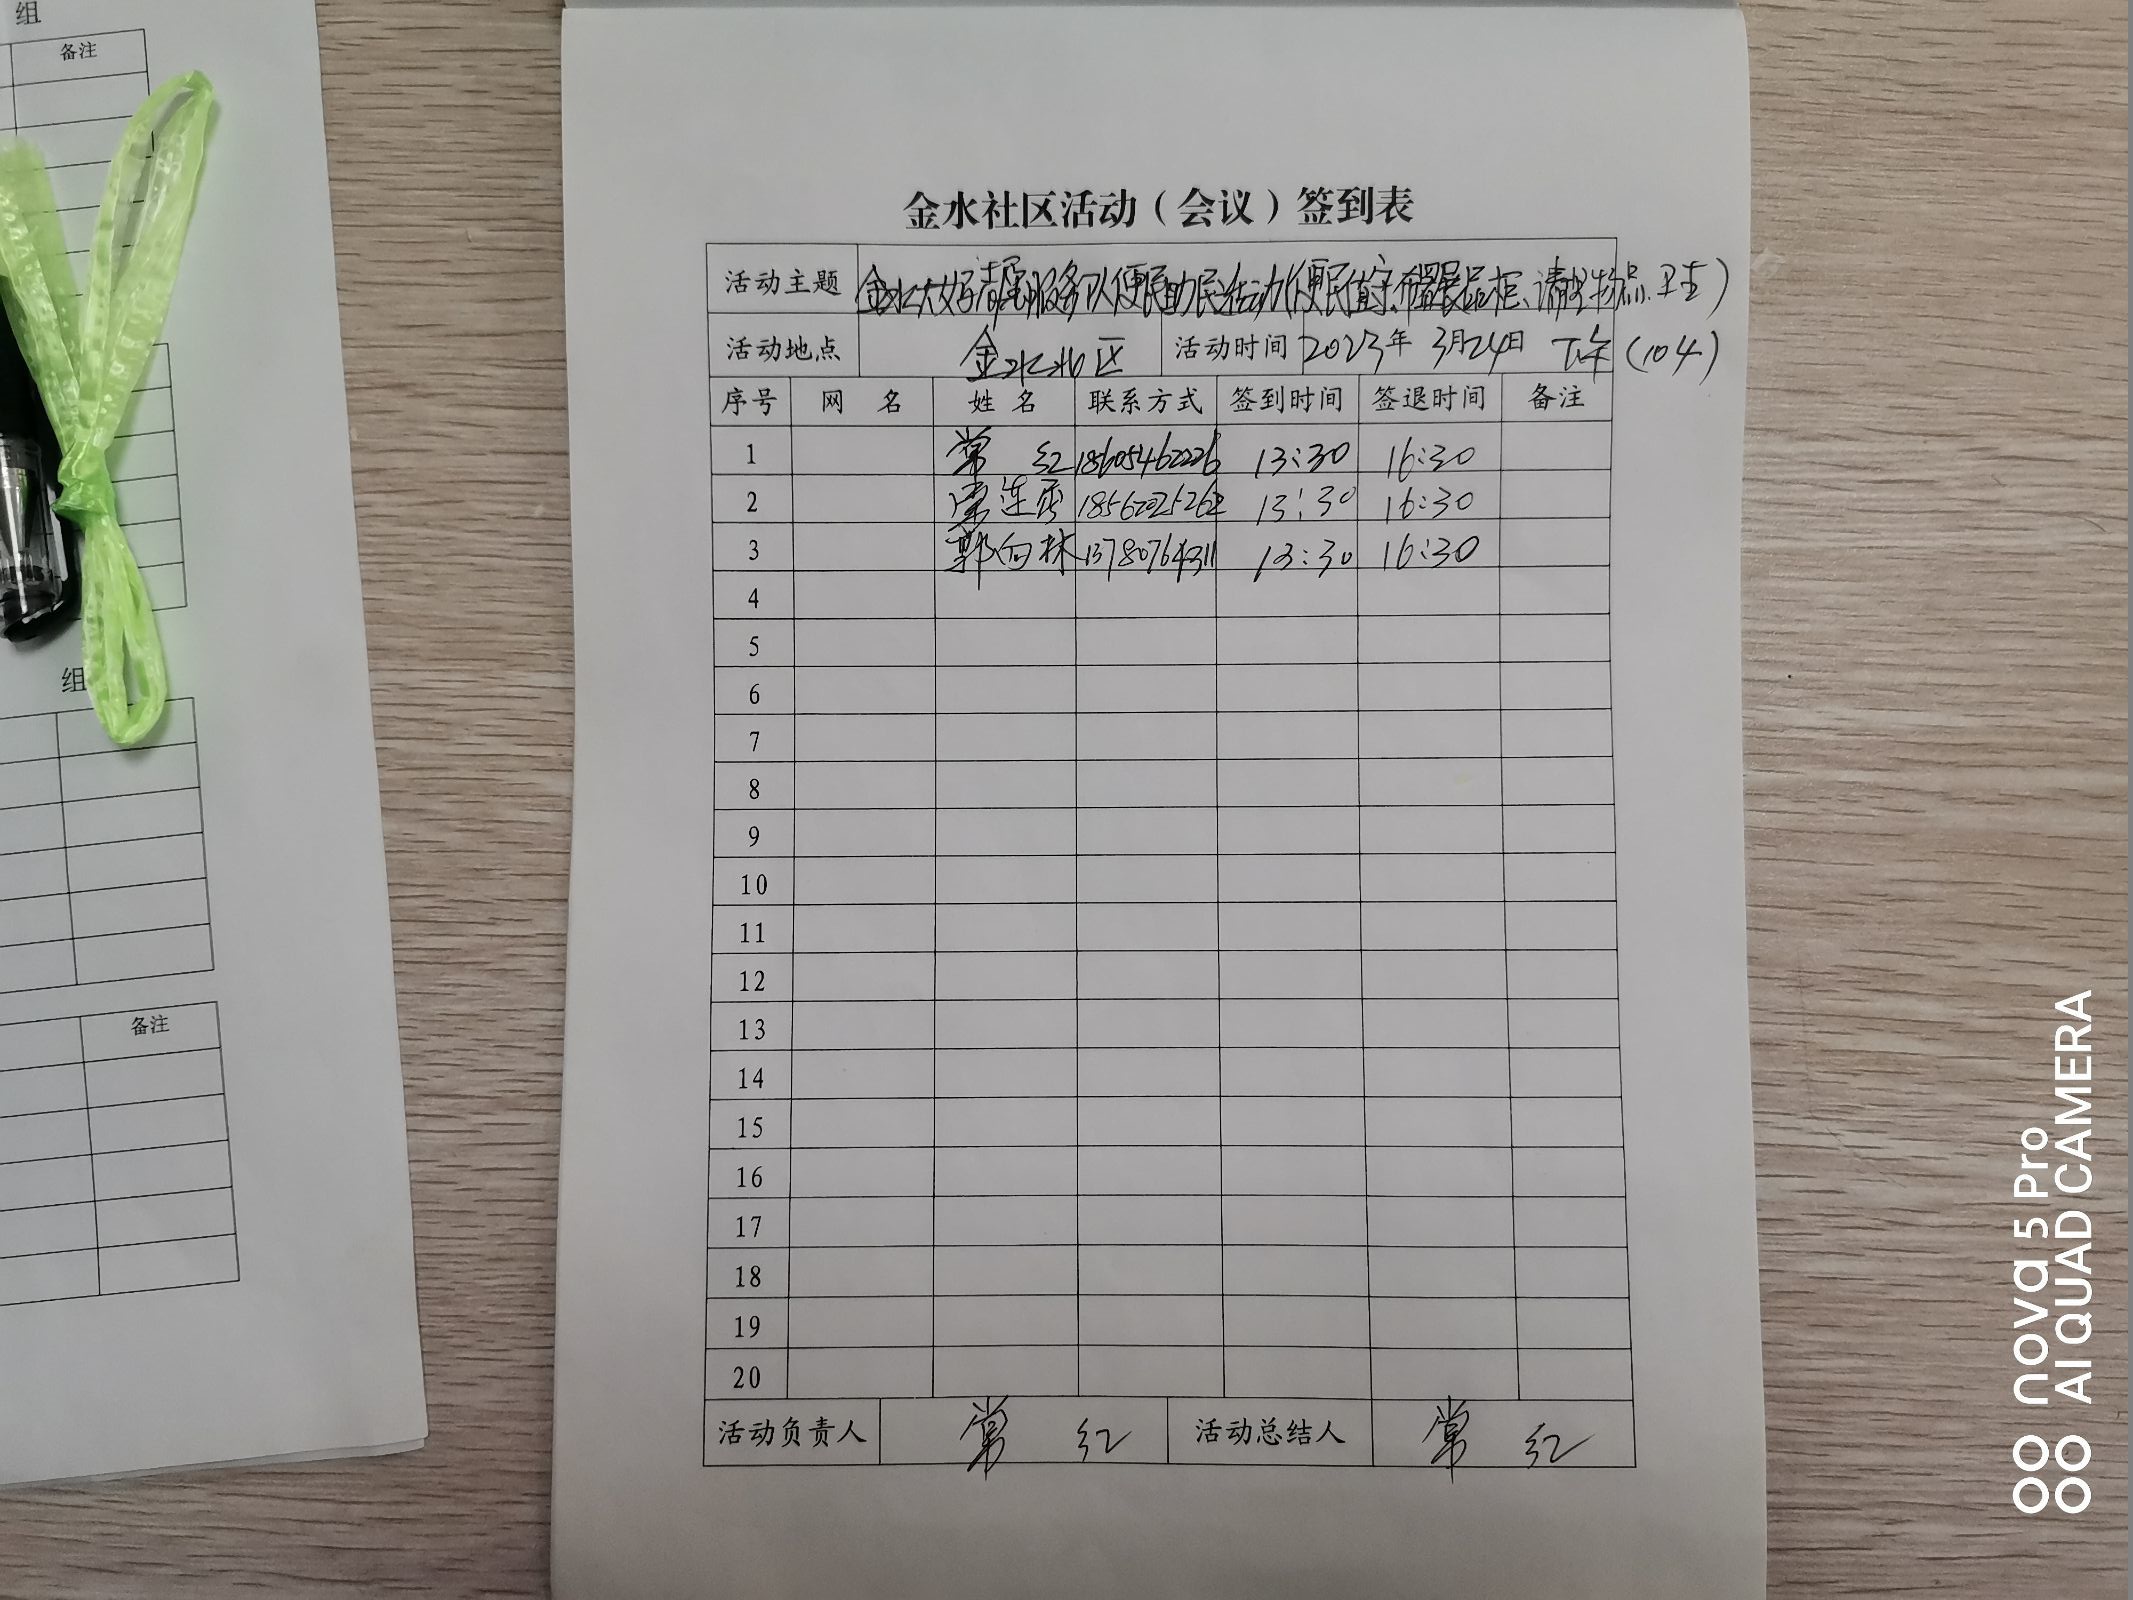 组
备注
组
备注
金水社区活动（会议）签到表
活动主题 金水大好志愿服务队便民助民活动(便民值守、布置展品柜、请 物点、卫生)
活动地点 金水北区 活动时间 2023年3月24日 下午(104)
序号 网 名 姓 名 联系方式 签到时间 签退时间 备注
1 常 红 18605462226 13:30 16:30
2 连 13:30 16:30
3 郭向林 13780764311 13:30 16:30
4
5
6
7
8
9
10
11
12
13
14
15
16
17
18
19
20
活动负责人 常 红 活动总结人 常 红
nova 5 Pro
AI QUAD CAMERA